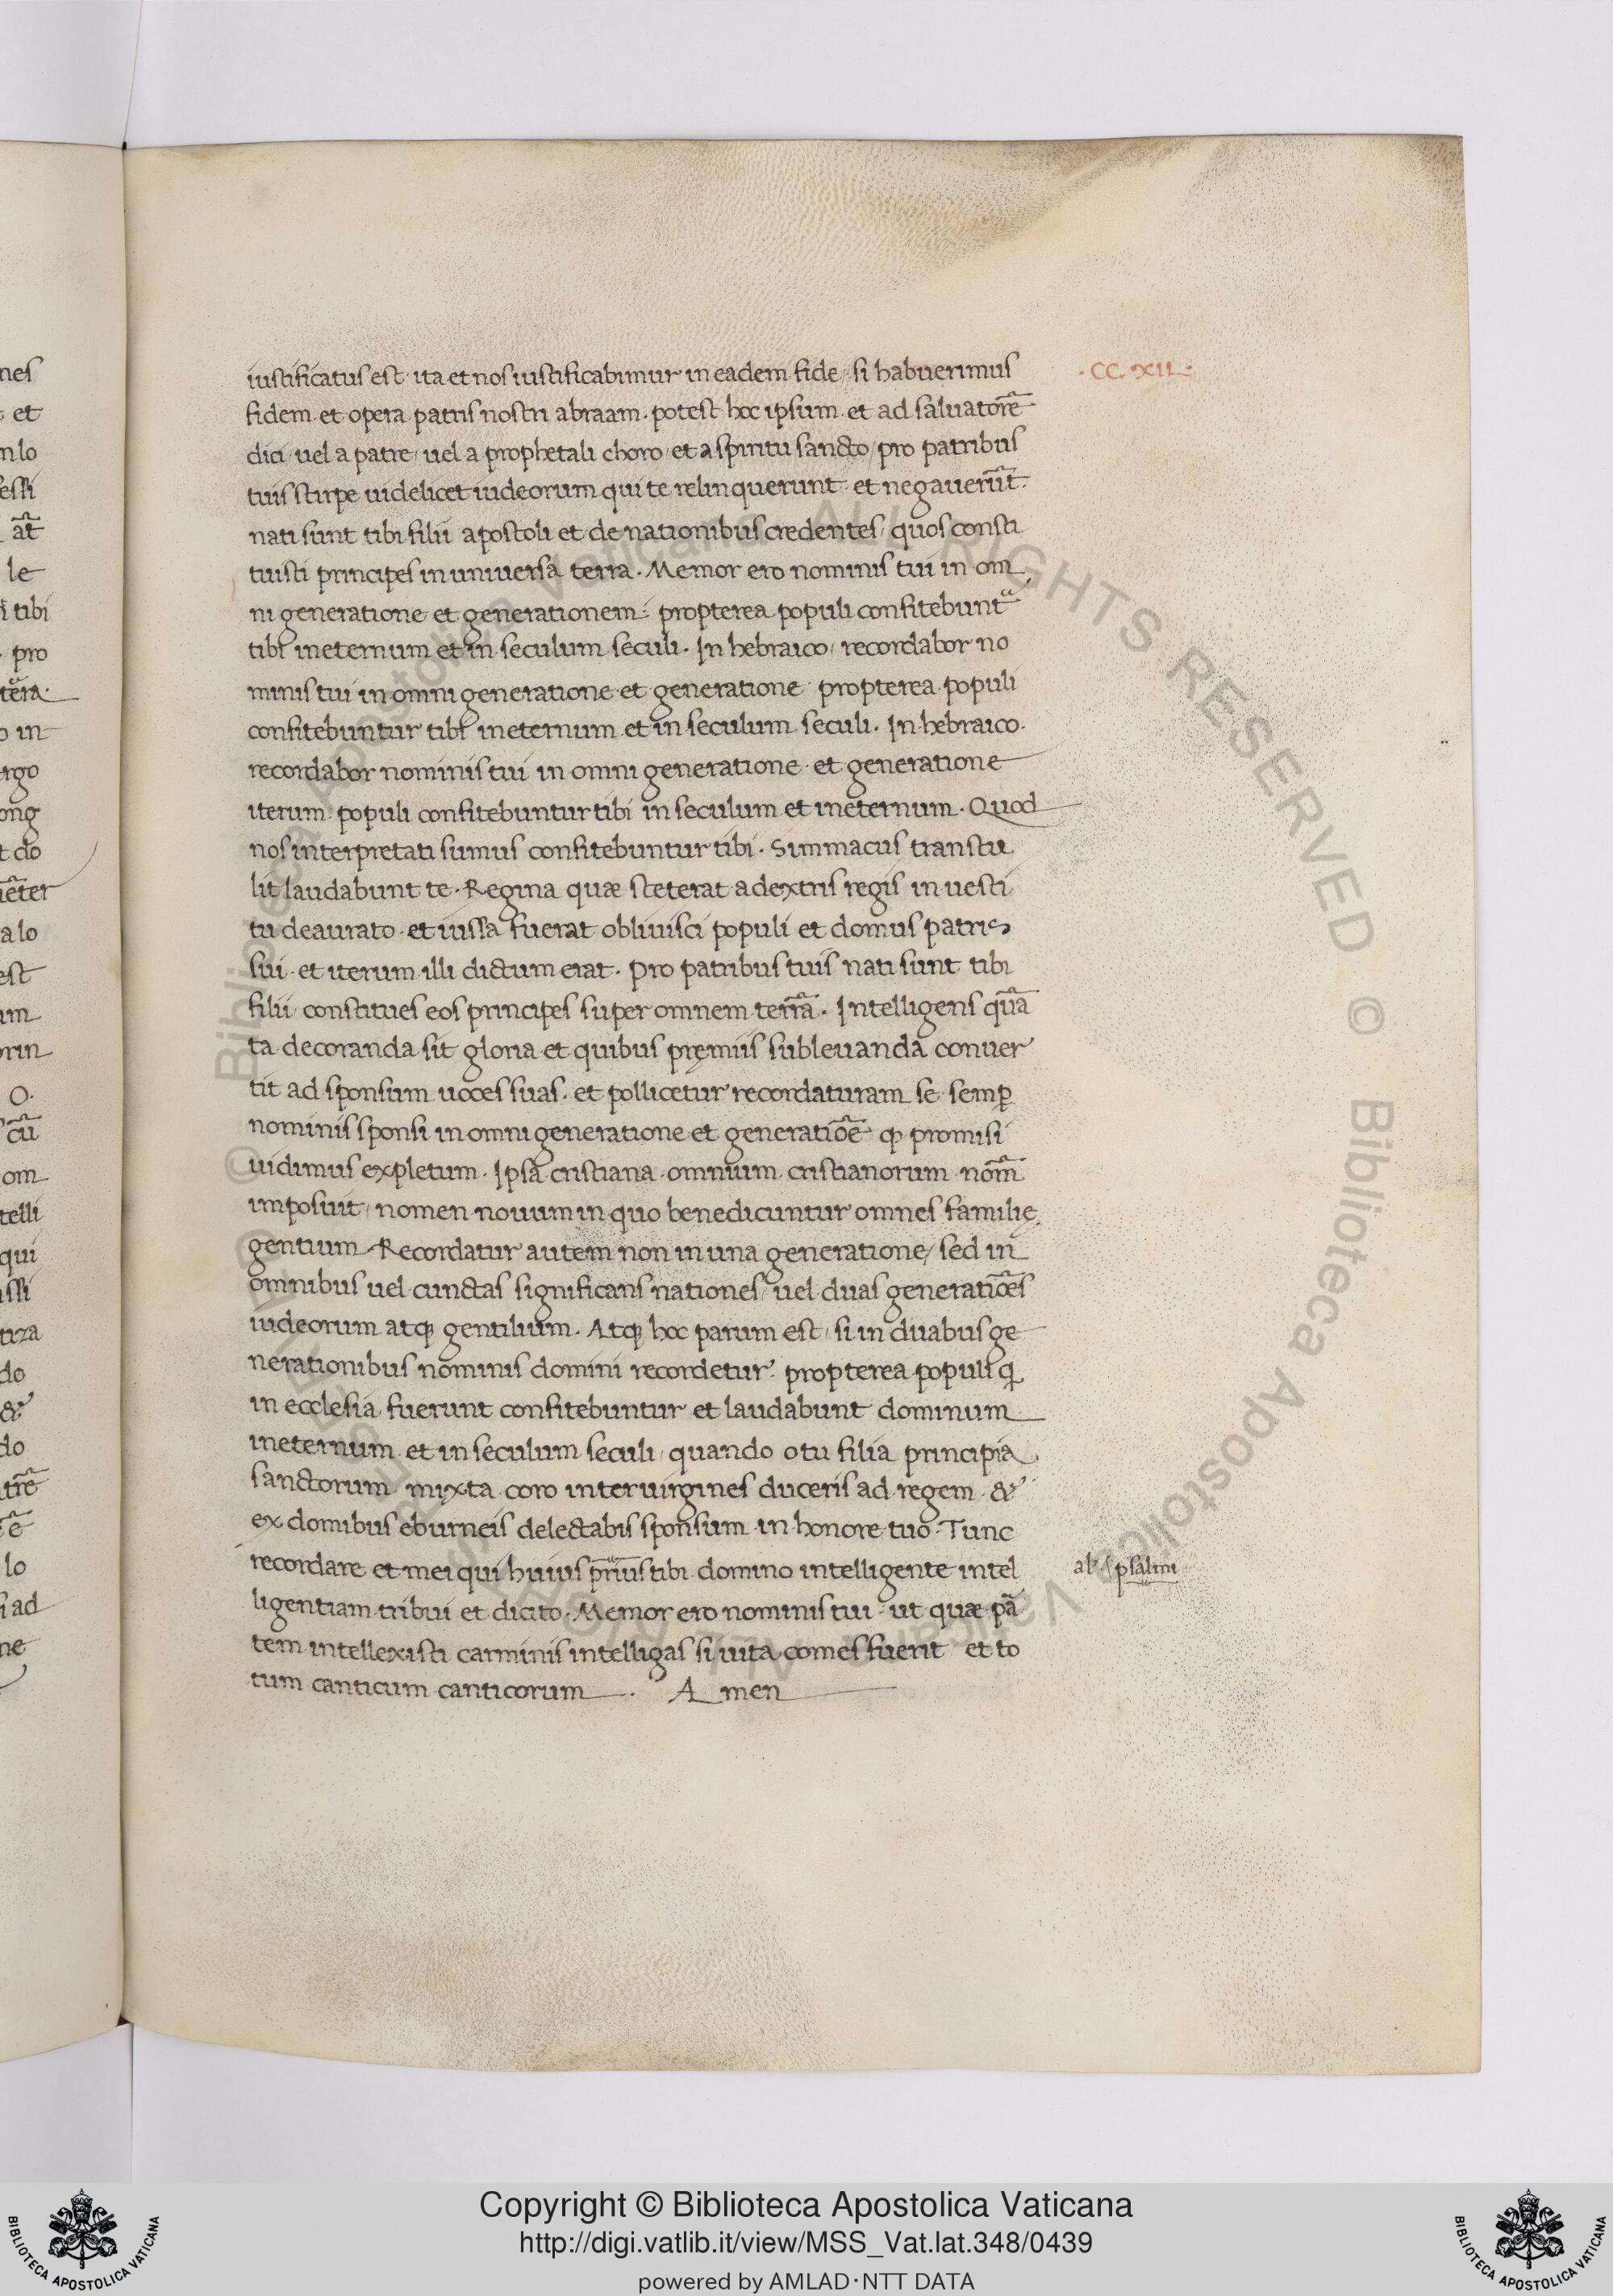 · CC · XII ·
iustificatus est · ita et nos iustificabimur in eadem fide / si habuerimus
fidem · et opera patris nostri abraam · potest hoc ipsum · et ad saluatorē
dici / uel a patre / uel a prophetali choro / et a spiritu sancto / pro patribus
tuis stirpe uidelicet iudeorum qui te relinquerunt · et negauerūt ·
nati sunt tibi filii apostoli et de nationibus credentes / quos consti
tuisti principes in uniuersa terra · Memor ero nominis tui in om
ni generatione et generationem : propterea populi confitebunt᷑
tibi ineternum et in seculum seculi · In hebraico / recordabor no
minis tui in omni generatione et generatione propterea populi
confitebuntur tibi ineternum et in seculum seculi · In hebraico ·
recordabor nominis tui in omni generatione · et generatione
iterum · populi confitebuntur tibi in seculum et ineternum · Quod
nos interpretati sumus confitebuntur tibi · Simmacus transtu
lit laudabunt te · Regina quæ steterat adextris regis in uesti
tu deaurato · et iussa fuerat obliuisci populi et domus patris
sui · et iterum illi dictum erat · Pro patribus tuis nati sunt tibi
filii / constitues eos principes super omnem terrā · Intelligens quā
ta decoranda sit gloria et quibus premiis subleuanda conuer
tit ad sponsum uoces suas · et pollicetur recordaturam se semꝑ
nominis sponsi in omni generatione et generatiōe ꝙ promisi
uidimus expletum · Ipsa cristiana omnium cristianorum nom̄
imposuit / nomen nouum in quo benedicuntur omnes familię
gentium · Recordatur autem non in una generatione / sed in
omnibus uel cunctas significans nationes / uel duas generatiōes
iudeorum atq; gentilium · Atq; hoc parum est / si in duabus ge
nerationibus nominis domini recordetur · propterea populi q̣
in ecclesia fuerunt confitebuntur et laudabunt dominum
ineternum et in seculum seculi / quando o tu filia principia
sanctorum mixta coro inter uirgines duceris ad regem · &
ex domibus eburneis delectabis sponsum in honore tuo · Tunc
recordare et mei qui huius pr̄ius tibi domino intelligente intel
al' psalmi
ligentiam tribui et dicito · Memor ero nominis tui · ut quæ pā
tem intellexisti carminis intelligas si uita comes fuerit et to
tum canticum canticorum · A men
Copyright © Biblioteca Apostolica Vaticana
http://digi.vatlib.it/view/MSS_Vat.lat.348/0439
powered by AMLAD·NTT DATA
BIBLIOTECA APOSTOLICA VATICANA
BIBLIOTECA APOSTOLICA VATICANA